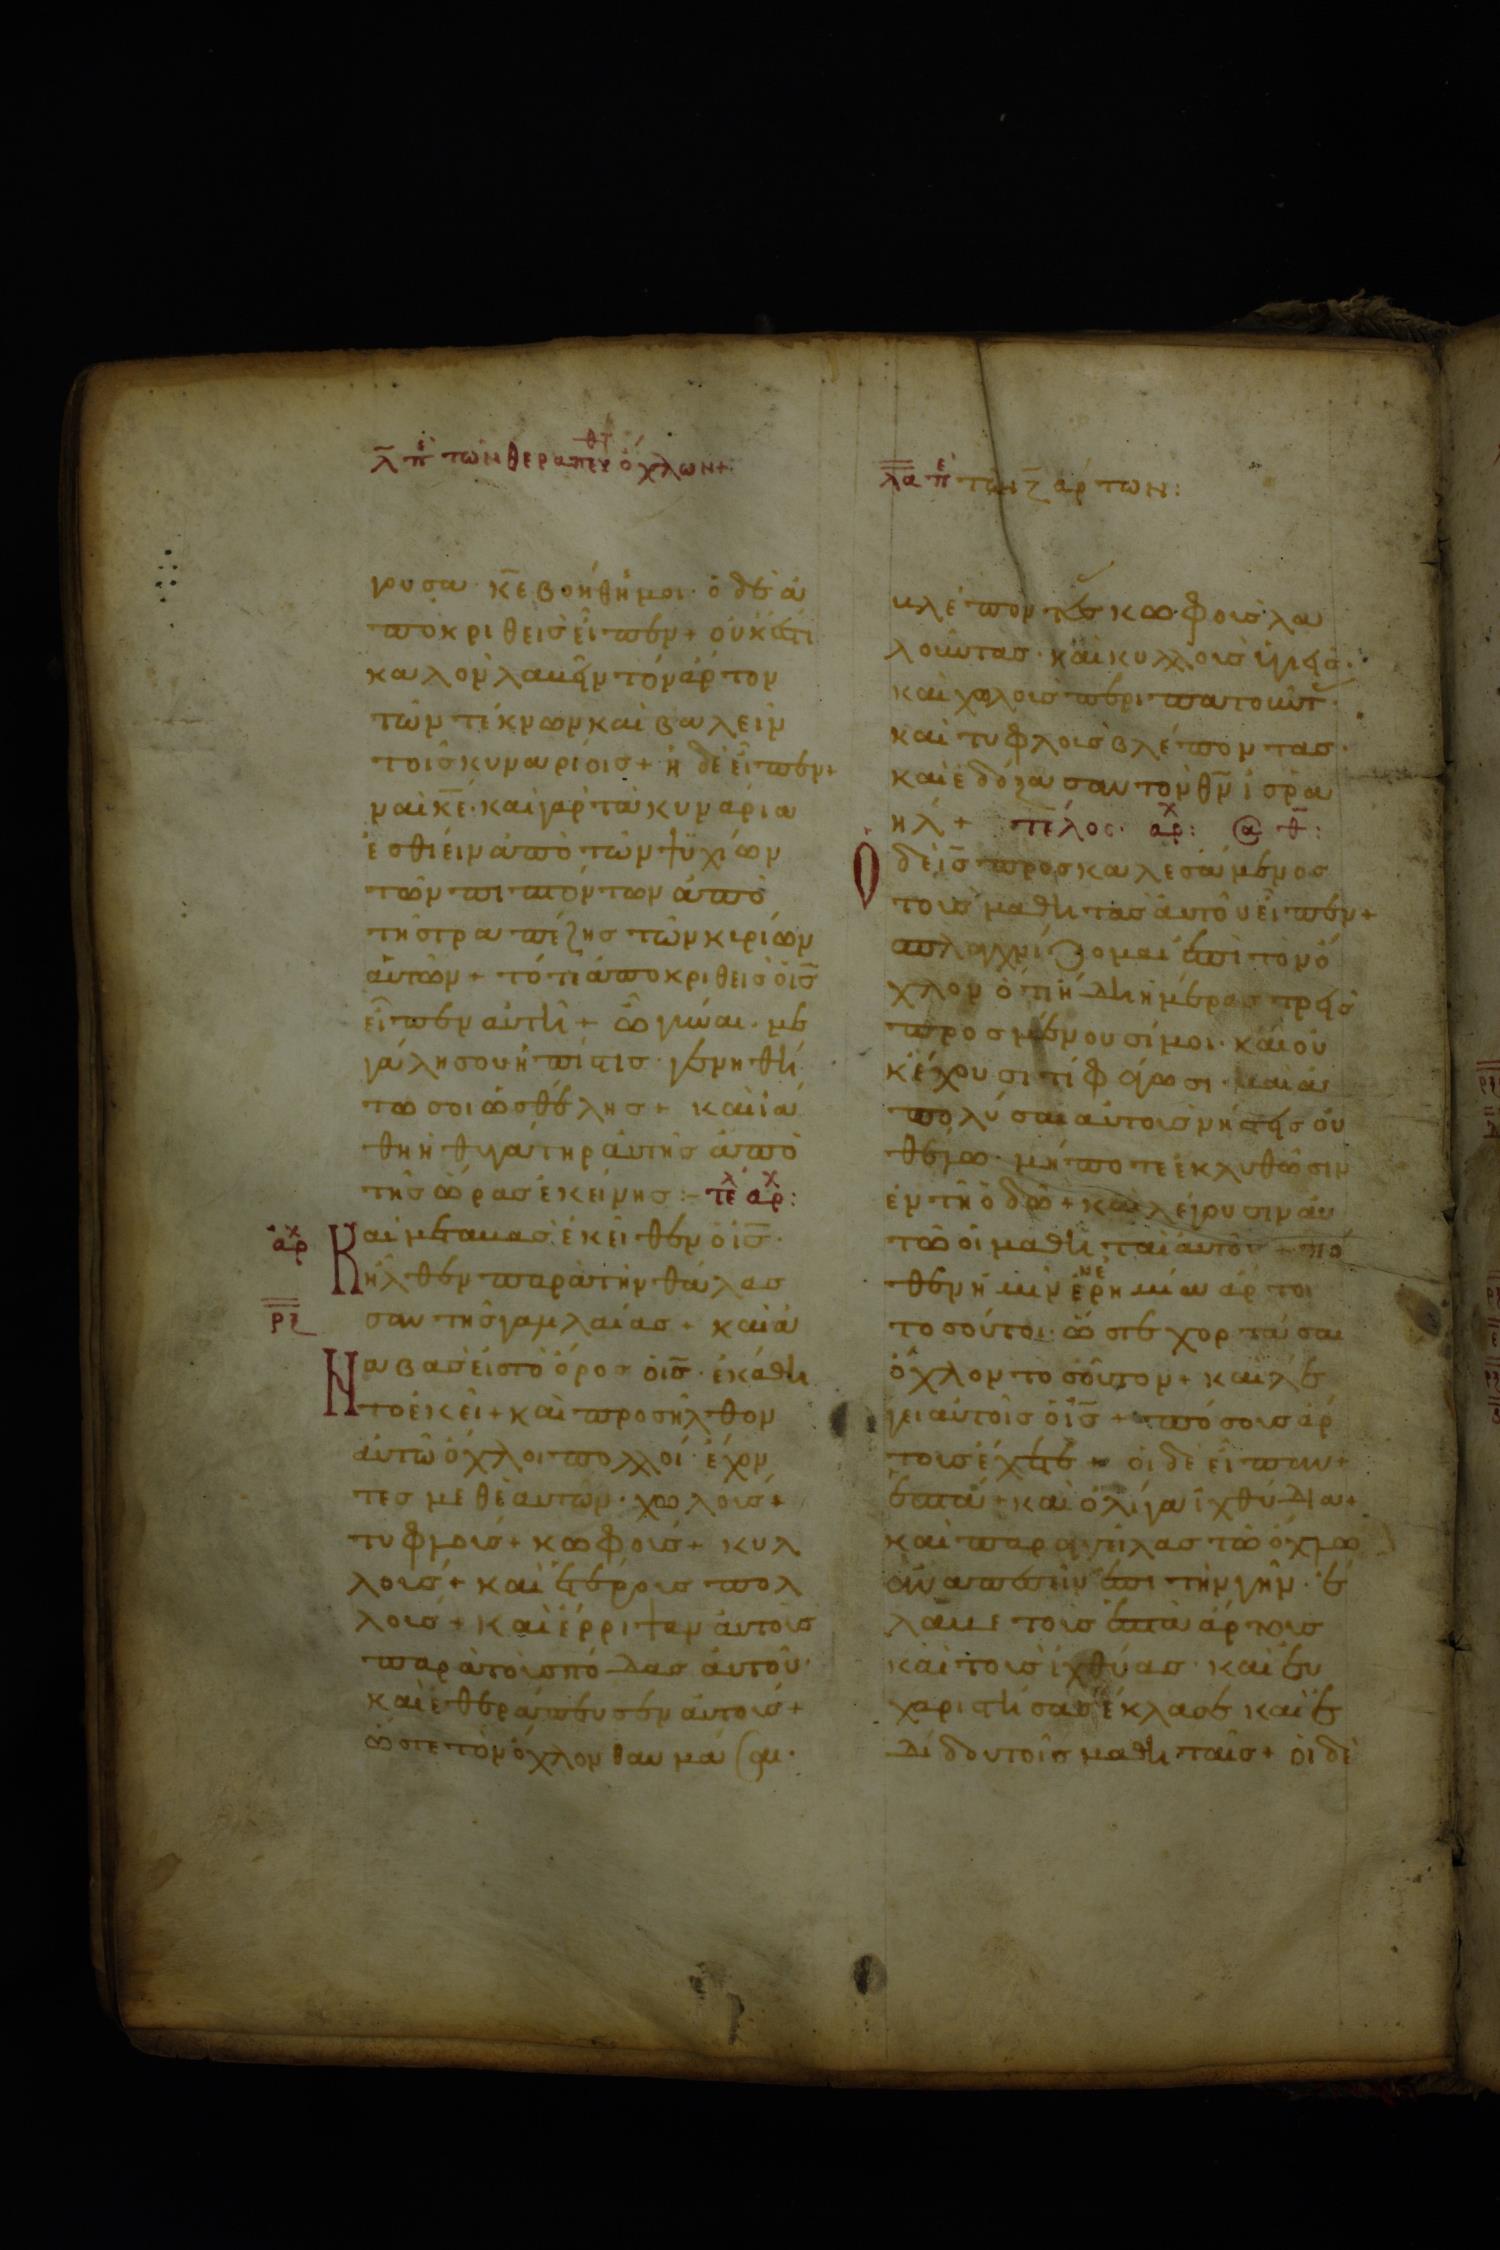 λ̅ πε τῶν θεραπευθτ ὄχλων+
γουσα· κ̅ε βοήθη μοι· ὁ δὲ ἀ
ποκριθεὶς εἶπεν+ οὐκ ἔστι
καλὸν λαβεῖν τὸν ἄρτον
τῶν τέκνων καὶ βαλεῖν
τοῖς κυναρίοις+ ἡ δὲ εἶπεν+
ναὶ κ̅ε· καὶ γὰρ τὰ κυνάρια
ἐσθίειν ἀπὸ τῶν ψυχίων
τῶν πιπτόντων ἀπὸ
τῆς τραπέζης τῶν κυρίων
αὐτῶν+ τότε ἀποκριθεὶς ὁ ι̅ς
εἶπεν αὐτῆ+ ὦ γύναι· με
γάλη σου ἡ πίστις· γενηθή
τω σοι ὡς θέλης+ καὶ ἰά
θη ἡ θυγάτηρ αὐτῆς ἀπὸ
τῆς ὥρας ἐκείνης:– τελ αρχ:
αρχ Καὶ μεταβὰς ἐκεῖθεν ὁ ι̅ς·
ἦλθεν παρὰ τὴν θάλασ
σαν τῆς γαλιλαίας+ καὶ ἀ
Ναβὰς εἰς τὸ ὄρος ὁ ι̅ς· ἐκάθη
το ἐκεῖ+ καὶ προσῆλθον
αὐτῶ ὄχλοι πολλοί· ἔχον
τες μεθ ἑαυτῶν· χωλούς+
τυφλούς+ κωφούς+ κυλ
λούς+ καὶ ἑτέρους πολ
λούς+ καὶ ἔρριψαν αὐτοὺς
παρὰ τοὺς πόδας αὐτοῦ·
καὶ ἐθεράπευσεν αὐτούς+
ὥστε τὸν ὄχλον θαυμάσαι·
λ̅α̅ πε τῶν ζ̅ ἄρτων:
βλέποντες κωφοὺς λα
λοῦντας· καὶ κυλλοὺς ὑγιεῖς·
καὶ χωλοὺς περιπατοῦντ·
καὶ τυφλοὺς βλέποντας·
καὶ ἐδόξασαν τὸν θ̅ν ἰσρα
ηλ+ τέλος· αρχ:
Ὁ δὲ ι̅ς προσκαλεσάμενος
τοὺς μαθητὰς αὐτοῦ εἶπεν+
σπλαγχνίζομαι ἐπὶ τὸν ὄ
χλον ὅτι ἤδη ἡμέρας τρεῖς
προσμένουσί μοι· καὶ οὐ
κ ἔχουσι τί φάγωσι· καὶ ἀ
πολύσαι αὐτοὺς νήστεις οὐ
θέλω· μήποτε ἐκλυθῶσιν
ἐν τῆ ὁδῶ+ καὶ λέγουσιν αὐ
τῶ οἱ μαθηταὶ αὐτοῦ+ πό
θεν ἡμῖν ἐν ἐρημία ἄρτοι
τοσοῦτοι· ὥστε χορτάσαι
ὄχλον τοσοῦτον+ καὶ λέ
γει αὐτοῖς ὁ ι̅ς+ πόσους ἄρ
τους ἔχετε+ οἱ δὲ εἶπαν+
ἑπτά+ καὶ ὀλίγα ἰχθύδια+
καὶ παραγγείλας τῶ ὄχλω
ἀναπεσεῖν ἐπὶ τὴν γῆν· ἔ
λαβε τοὺς ἑπτὰ ἄρτους
καὶ τοὺς ἰχθύας· καὶ εὐ
χαριστήσας ἔκλασε καὶ ἐ
δίδου τοῖς μαθηταῖς+ οἱ δὲ